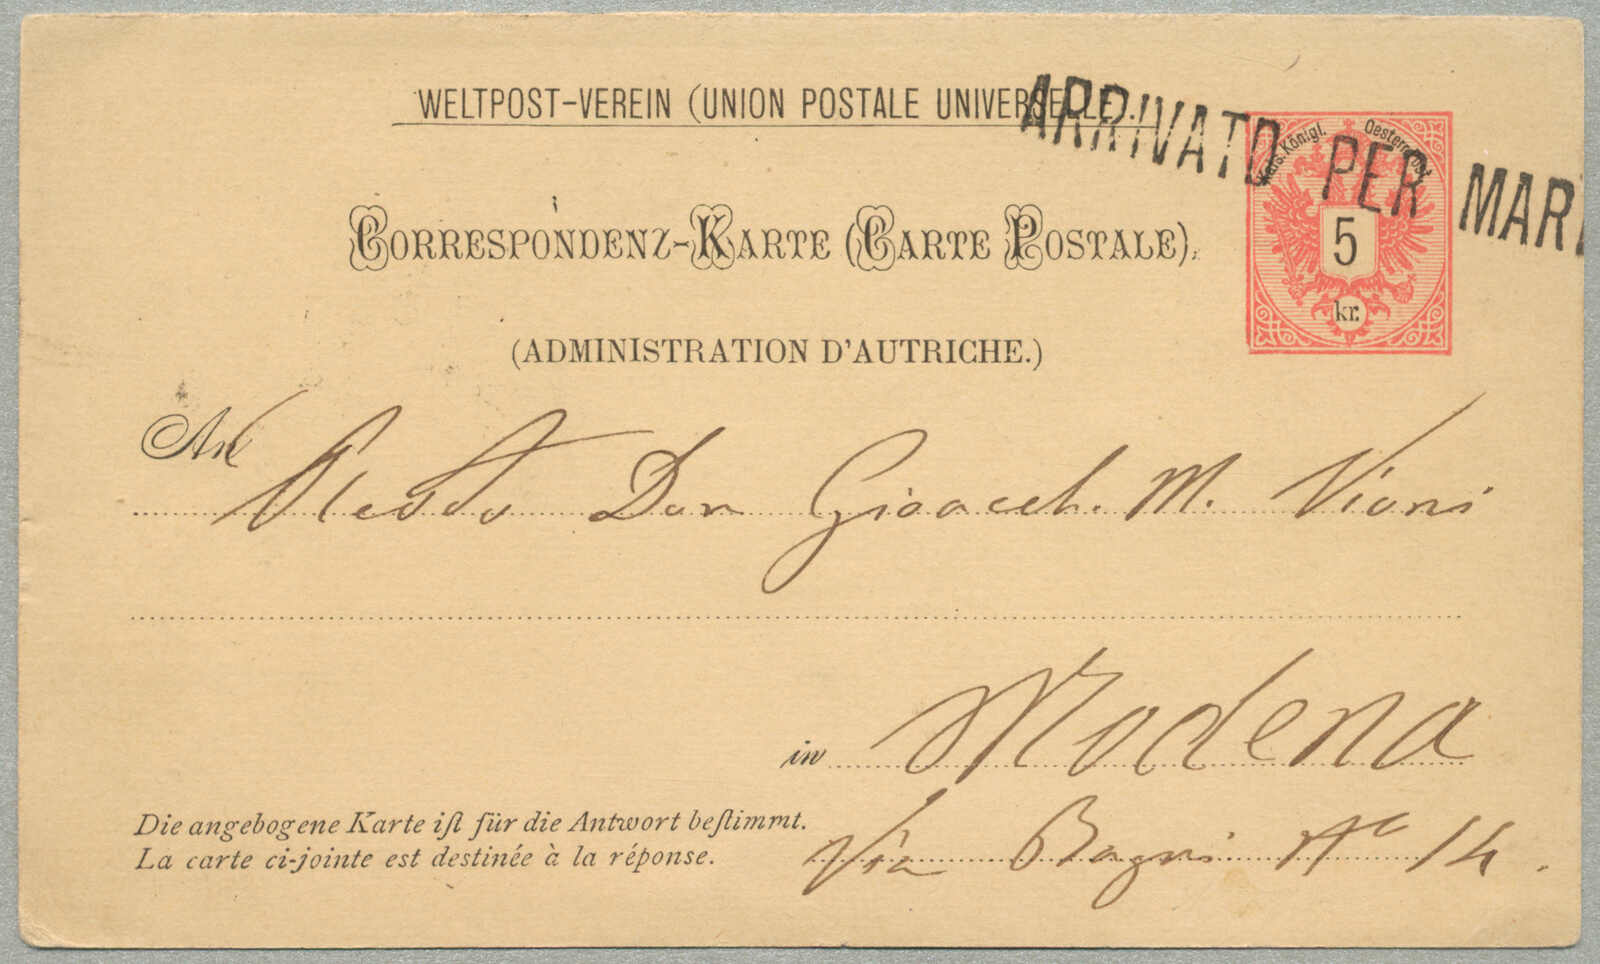 WELTPOST-VEREIN (UNION POSTALE UNIVERSELLE).
ARRIVATO PER MARE
Kais. Königl. Oesterr. Post
CORRESPONDENZ-KARTE (CARTE POSTALE).
5
kr.
(ADMINISTRATION D'AUTRICHE.)
An Don Gioacch. M. Vioni
in Modena
Die angebogene Karte ist für die Antwort bestimmt.
La carte ci-jointe est destinée à la réponse.
Via Bagni No 14.